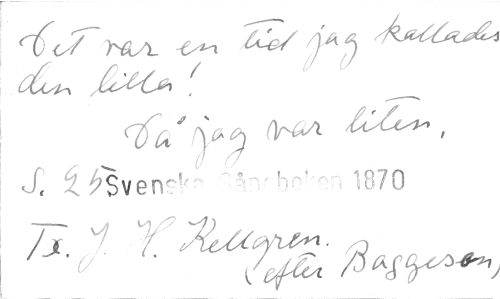 Det var en tid jag kallades
den lilla!
Då jag var liten.
S. 25 Svenska Sångboken 1870
Tx. J. H. Kellgren.
(efter Baggesen)